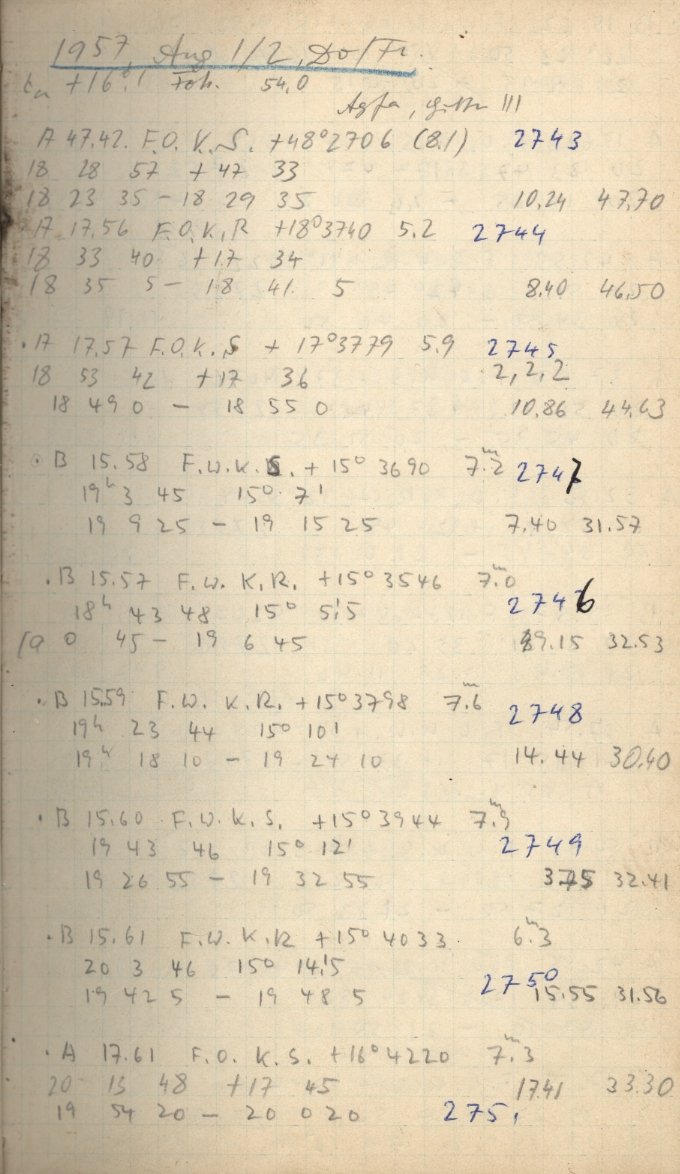 1957, Aug 1/2, Do/Fr.
+16°,1 Fok. 54,0
Agfa, Gitter III
A 47.42. F.O. K.S. +48°2706 (8.1) 2743
18 28 57 +47 33
18 23 35 - 18 29 35 10.24 47.70
A 17.56 F.O.K.R +18°3740 5.2 2744
18 33 40 +17 34
18 35 5 - 18 41 5 8.40 46.50
. A 17.57 F.O.K.S + 17°3779 5.9 2745
18 53 42 +17 36 2,2,2
18 49 0 - 18 55 0 10.86 44.63
. B 15.58 F.W.K.S. + 15° 3690 7.ᵐ2 2747
19ʰ 3 45 15° 7'
19 9 25 - 19 15 25 7.40 31.57
. B 15.57 F.W. K.R. +15° 3546 7.ᵐ0
18ʰ 43 48 15° 5!5 2746
19 0 45 - 19 6 45 19.15 32.53
. B 15.59 F.W. K.R. +15°3798 7.ᵐ6
19ʰ 23 44 15° 10' 2748
19ʰ 18 10 - 19 24 10 14.44 30.40
. B 15.60 F.W.K.S. +15°3944 7.ᵐ9
19 43 46 15° 12' 2749
19 26 55 - 19 32 55 32.41
. B 15.61 F.W.K.R +15° 4033. 6.ᵐ3
20 3 46 15° 14!5 2750
19 42 5 - 19 48 5 15.55 31.56
. A 17.61 F.O. K.S. +16°4220 7.ᵐ3
20 13 48 +17 45 17.41 33.30
19 54 20 - 20 0 20 2751